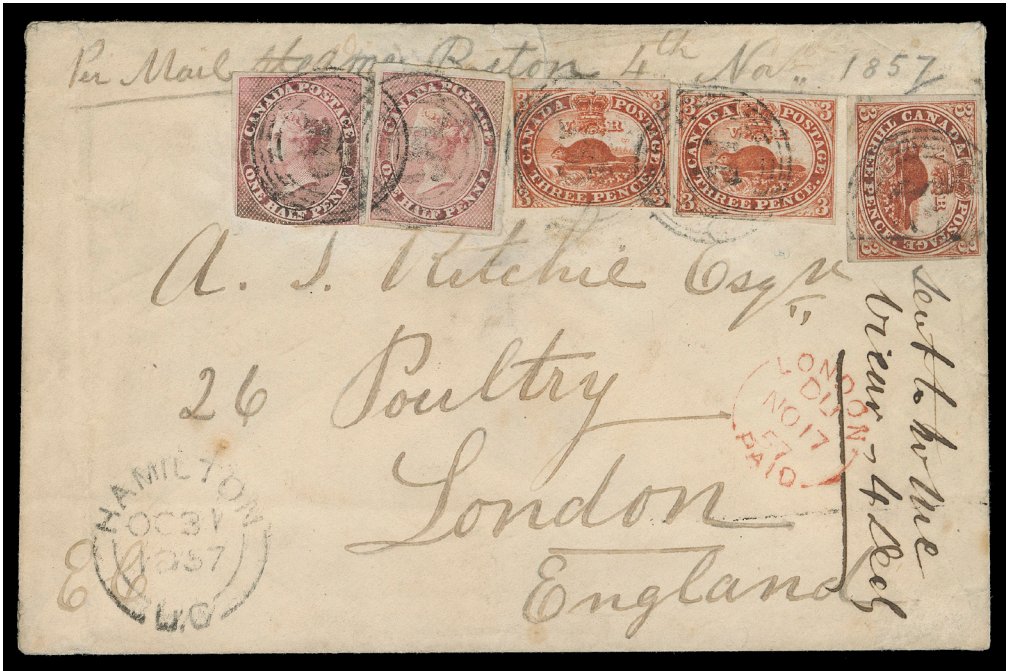 Per Mail Steamer Boston 4th Nov 1857
CANADA POSTAGE
ONE HALF PENNY
CANADA POSTAGE
ONE HALF PENNY
CANADA POSTAGE
3 3
V R
THREE PENCE
3 3
CANADA POSTAGE
3 3
V R
THREE PENCE.
3 3
CANADA POSTAGE
3 3
THREE PENCE
3 3
A. J. Ritchie Esqr
26 Poultry
London
England
E C
HAMILTON
OC 31
1857
U.C
LONDON
NO 17
57
PAID
4 Dec